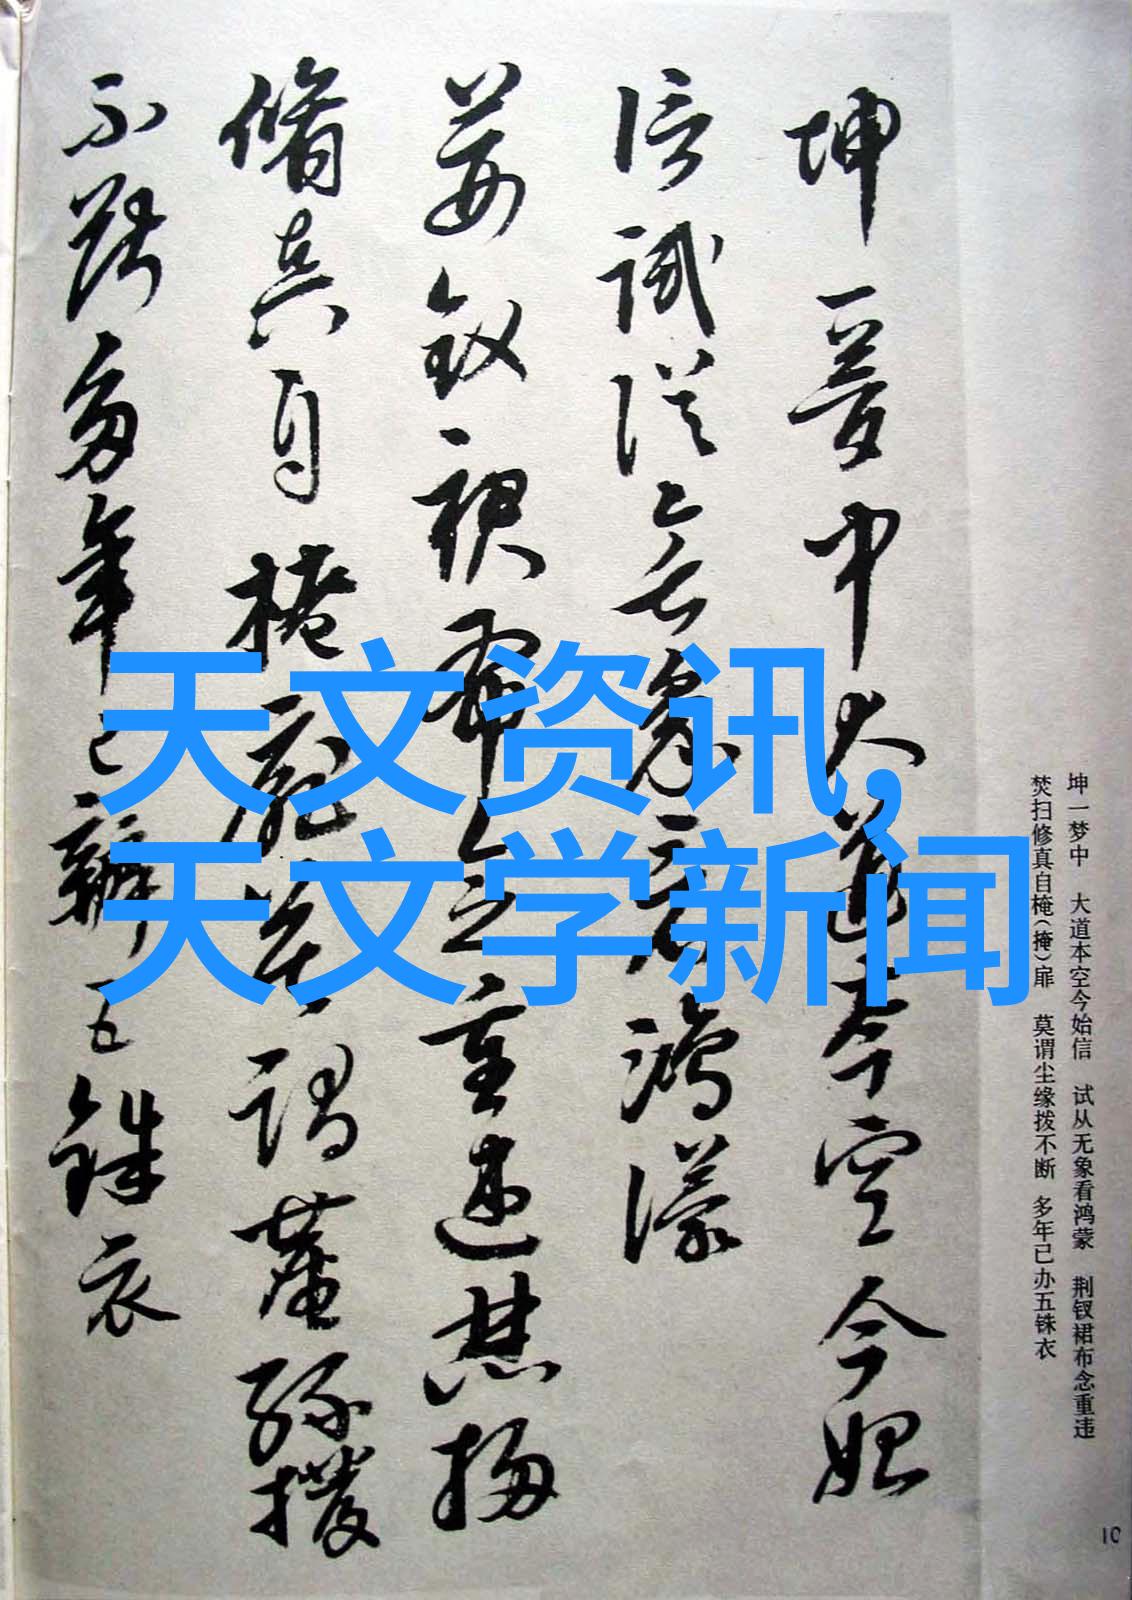 坤一夢中大道本空今始
信試從無象看鴻濛
荆釵裙布念重違焚掃
脩真自掩扉莫謂塵緣撥
不斷多年已辦五銖衣
天文资讯,
天文学新闻
坤一梦中 大道本空今始信 试从无象看鸿蒙 荆钗裙布念重违
焚扫修真自(掩)扉 莫谓尘缘拨不断 多年已办五铢衣
10